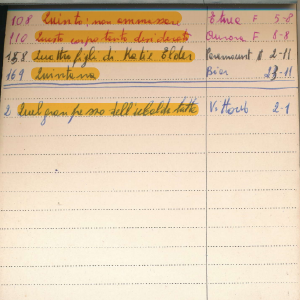 108 Quinto: non ammazzare Etrue F. 5-8
110 Questo corpo tanto desiderato Aurora F. 8-8
158 Quattro figli di Katie Elder Paramount 2-11
169 Quintana Bios 23-11
2 Quel gran pezzo dell'ubalda tutta V. Houb 2-1